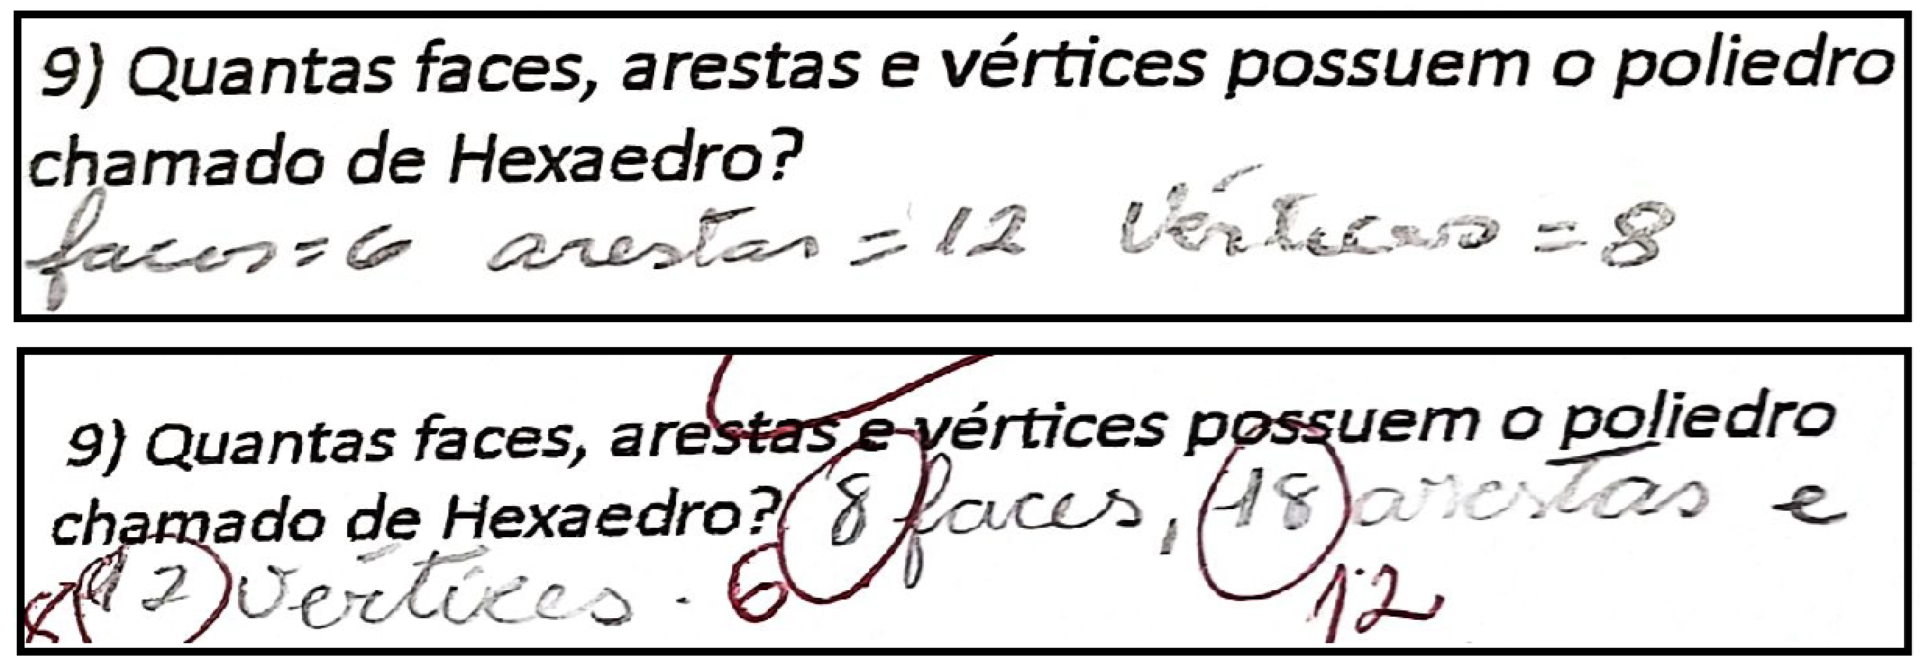 9) Quantas faces, arestas e vértices possuem o poliedro
chamado de Hexaedro?
faces=6 arestas = 12 Vértices = 8
9) Quantas faces, arestas e vértices possuem o poliedro
chamado de Hexaedro? 8 faces, 18 arestas e
8 12 vértices. 6 12